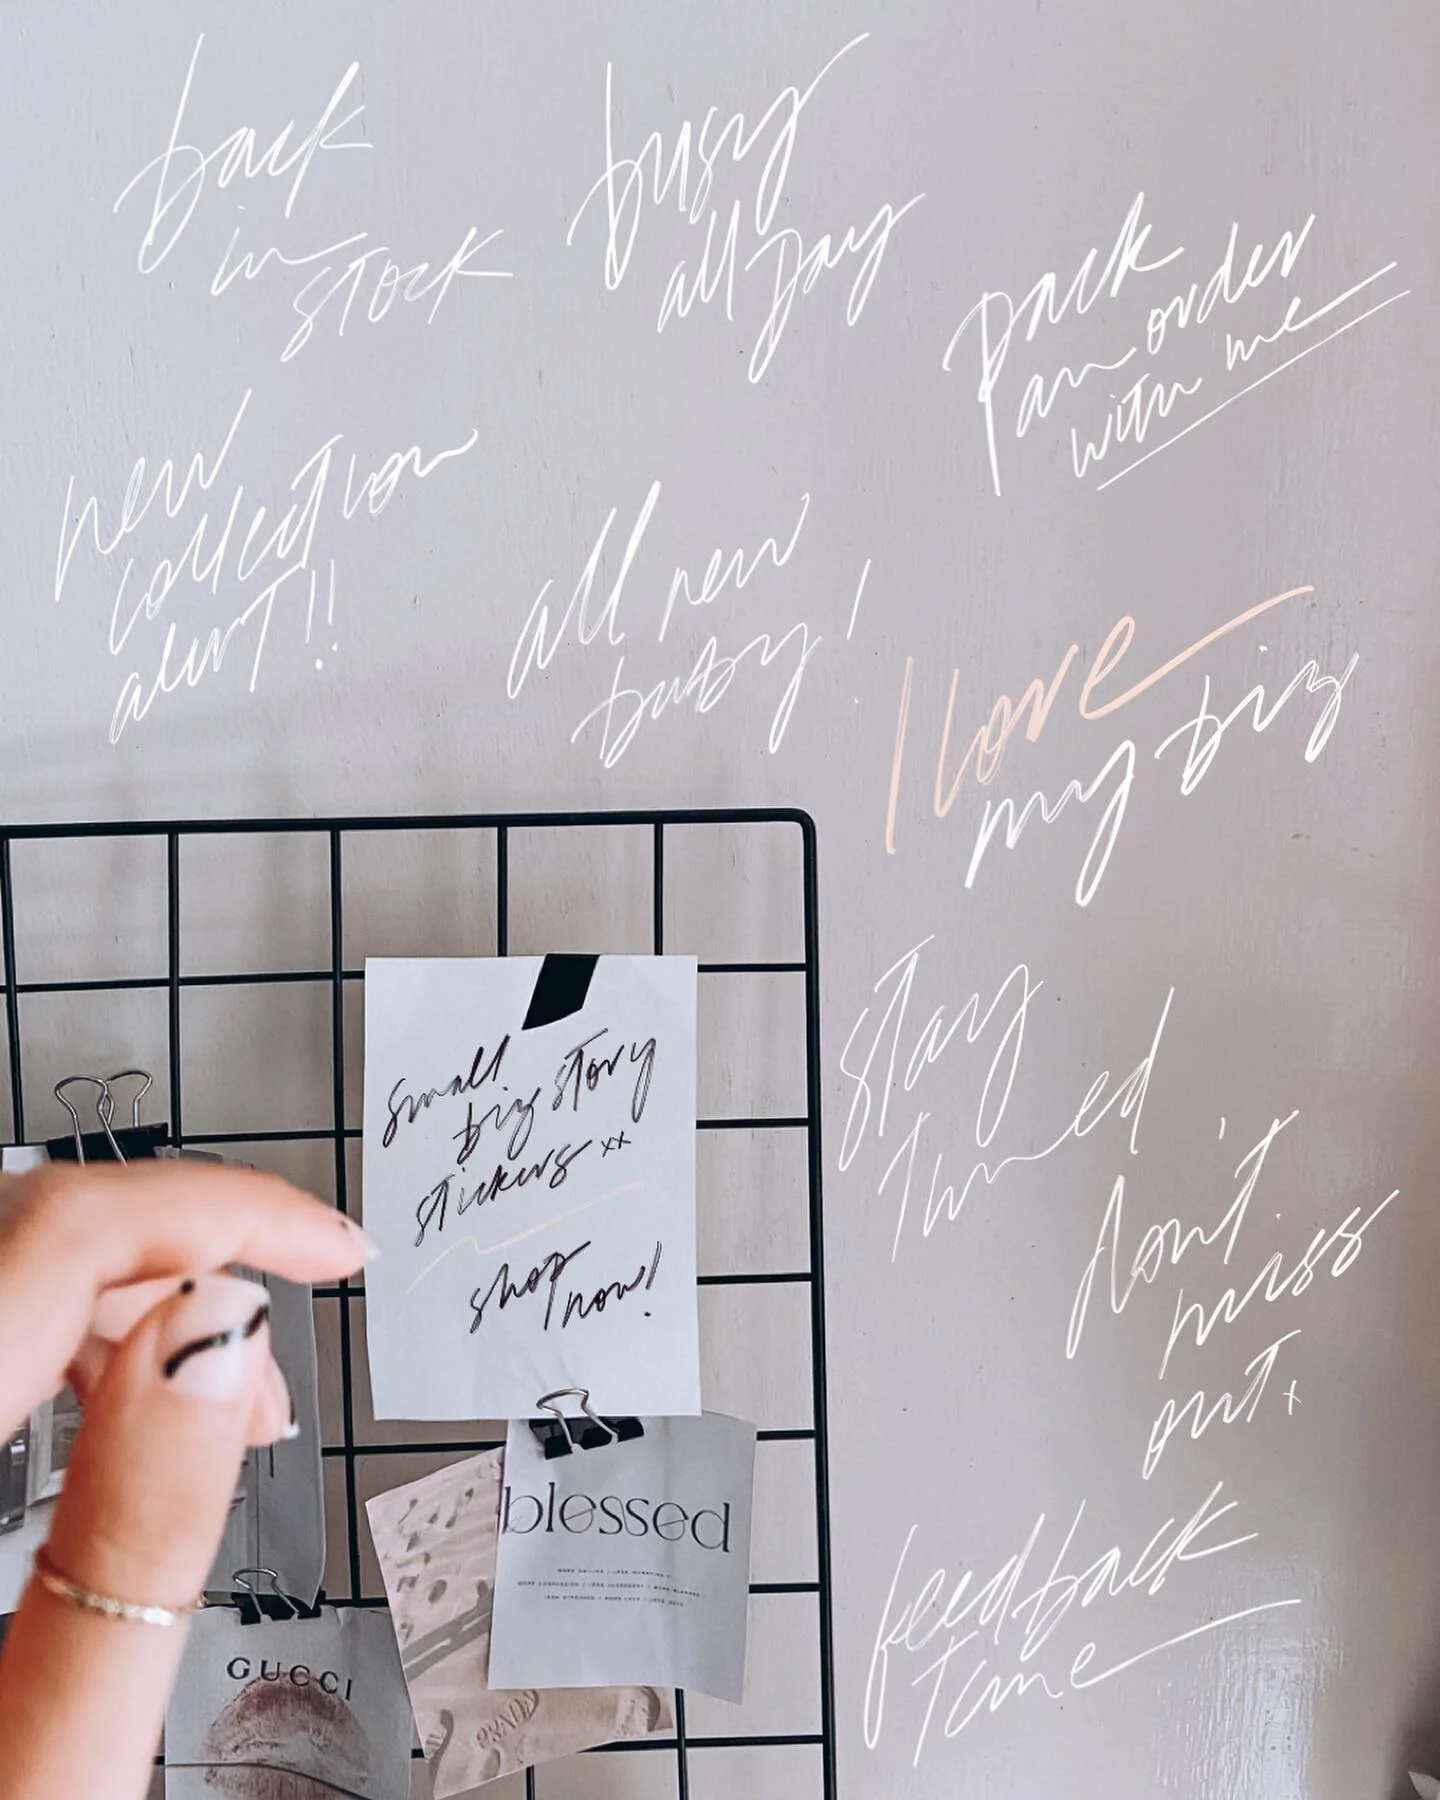 back
in
stock
busy
all day
pack
an order
with me
new
collection
alert!!
all new
baby!
I love
my biz
stay
tuned
don't
miss
out x
small
biz story
stickers xx
shop
now!
feedback
time
blessed
GUCCI